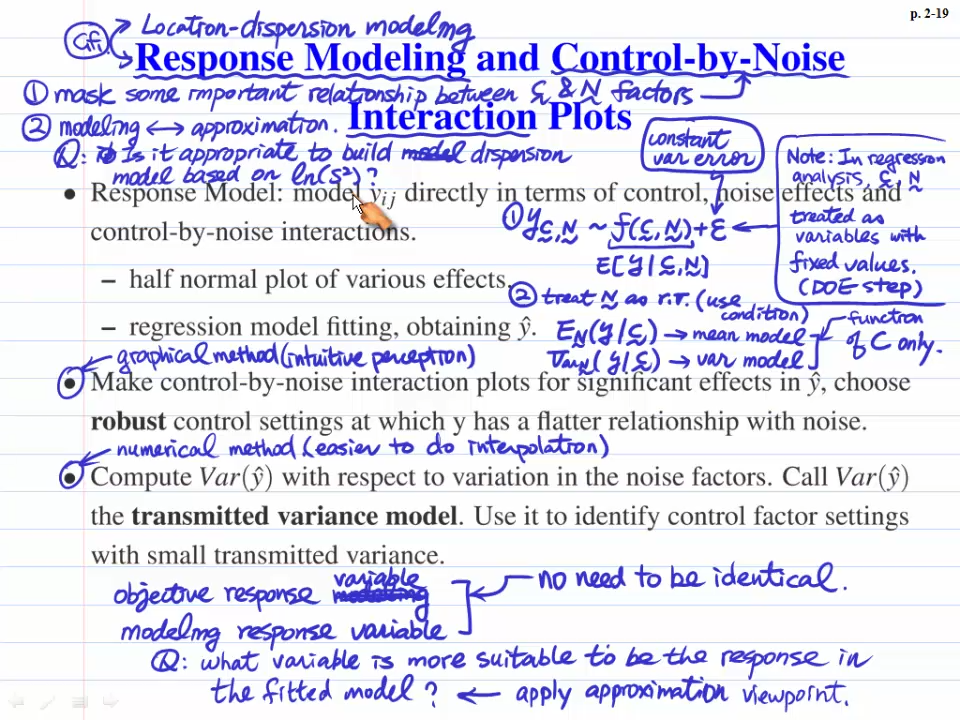 p. 2-19
Cf. Location-dispersion modeling
Response Modeling and Control-by-Noise
① mask some important relationship between C & N factors
Interaction Plots
② modeling ↔ approximation.
Q: Is it appropriate to build dispersion
model based on ln(s²)?
constant
var error
Note: In regression
analysis, C, N
treated as
variables with
fixed values.
(DOE step)
• Response Model: model y_ij directly in terms of control, noise effects and
control-by-noise interactions.
① y_C,N ~ f(C,N) + ε
E[y|C,N]
– half normal plot of various effects.
② treat N as r.v. (use
condition)
– regression model fitting, obtaining ŷ.
E_N(y|C) → mean model
Var_N(y|C) → var model
function
of C only.
graphical method (intuitive perception)
• Make control-by-noise interaction plots for significant effects in ŷ, choose
robust control settings at which y has a flatter relationship with noise.
numerical method (easier to do interpolation)
• Compute Var(ŷ) with respect to variation in the noise factors. Call Var(ŷ)
the transmitted variance model. Use it to identify control factor settings
with small transmitted variance.
objective response variable
modeling response variable
no need to be identical.
Q: what variable is more suitable to be the response in
the fitted model? ← apply approximation viewpoint.